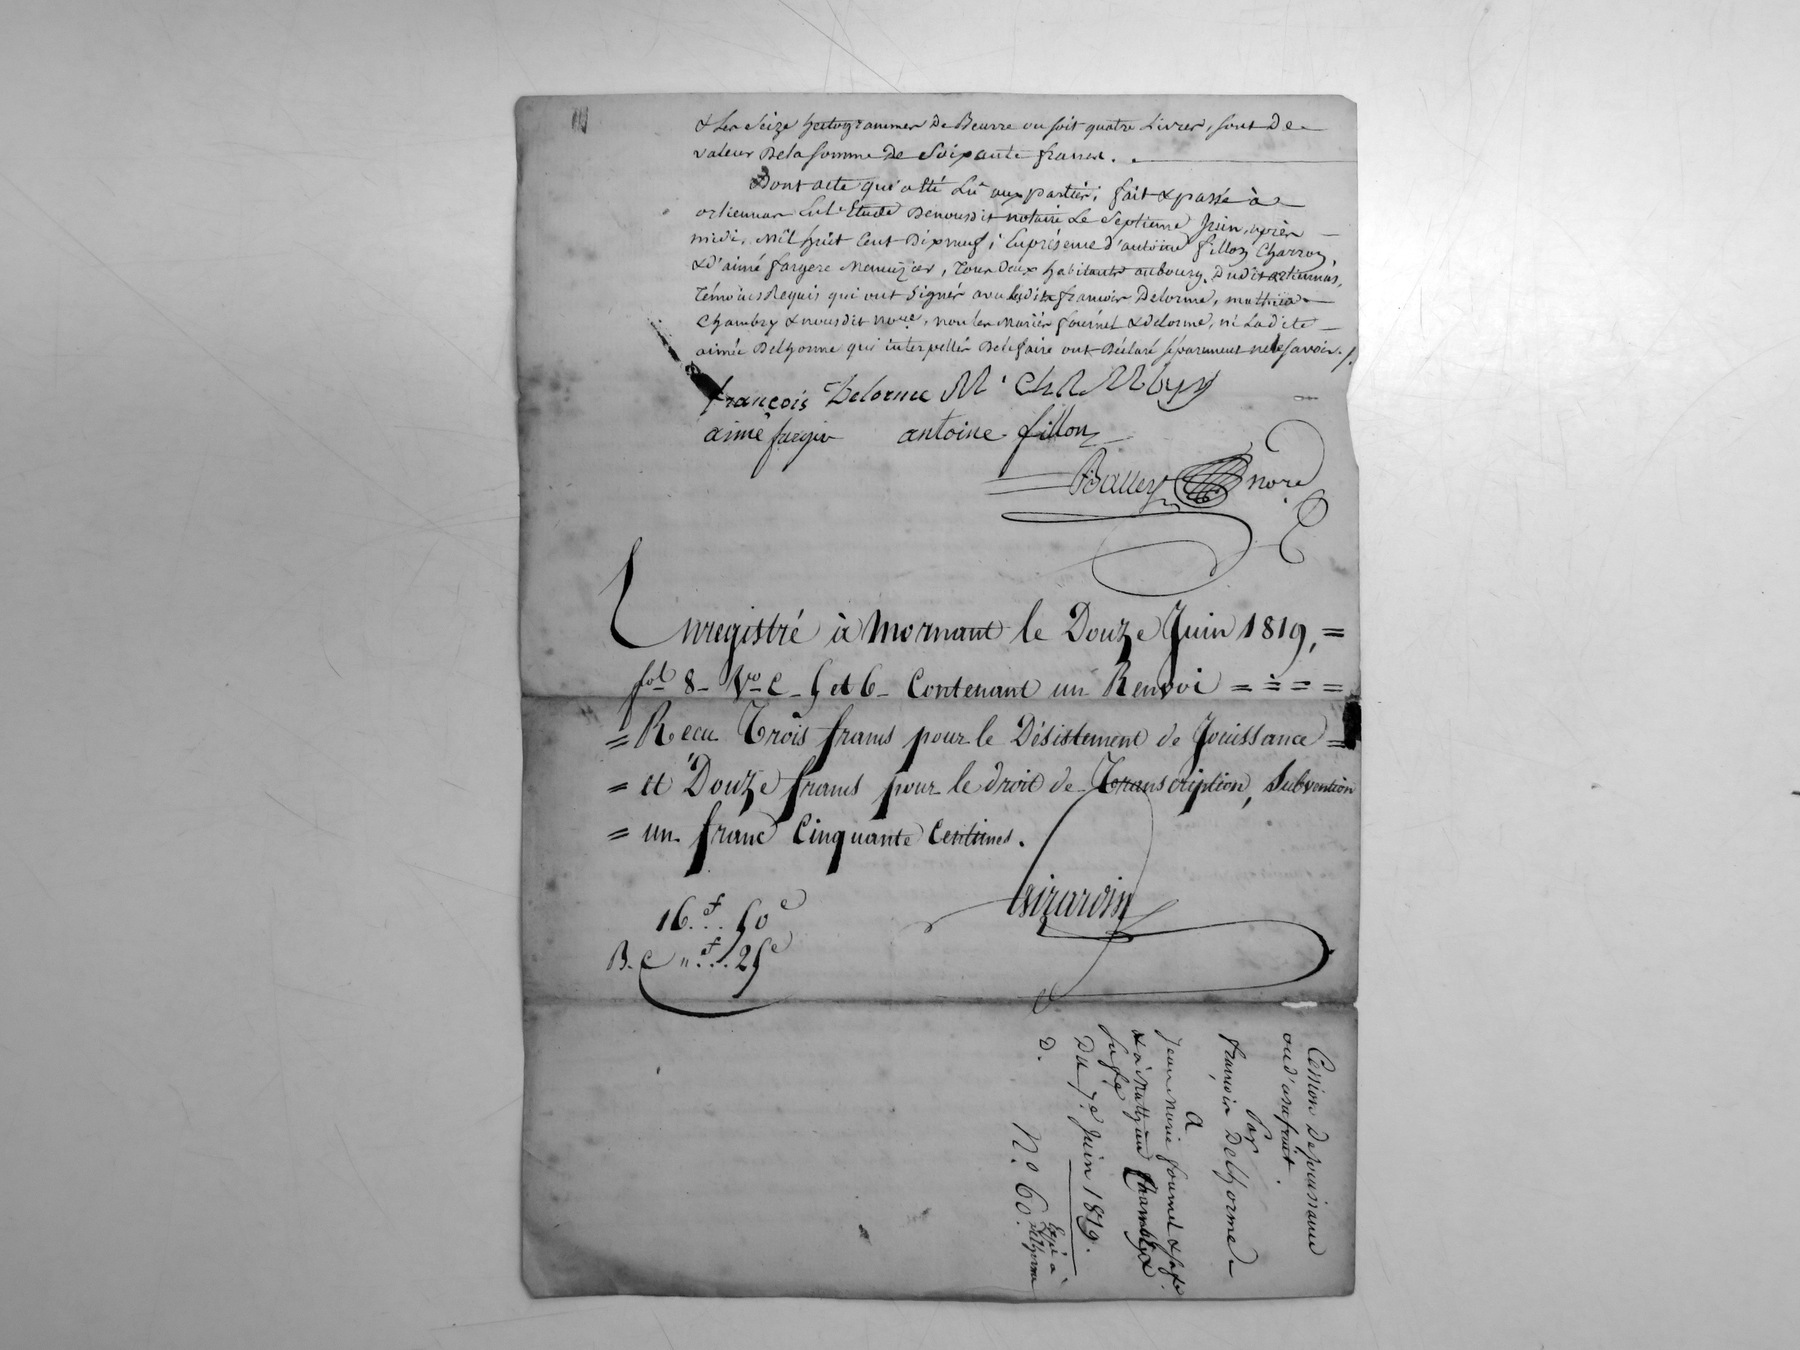 & les seize hectogrammes De Beurre ou soit quatre Livres, sont De
valeur Dela somme De soixante francs.
Dont acte qui a été Lû aux parties; fait & passé à
orliennas Lul. Etude Denousdit notaire Le Septieme Juin, après
midi, Mil huit Cent Dixneuf; Enprésence d'antoine fillon Charron,
& d'aimé fargere Menuizier, tous Deux habitants aubourg Dudit orliennas,
témoins Requis qui ont signés avec ledit françois Delorme, mathieu
Chambry & nousdit nore, non les Mariés fournel & delorme, ni Ladite
aimée Delhorme qui interpellés Delefaire ont Déclaré séparement nelesavoir./.
françois Delorme M. Chambry
aimé antoine fillon
Balley nore
Enregistré à Mornant le Douze Juin 1819, =
fol 8 Vo C 5 et 6 Contenant un Renvoi = = = =
= Recu Trois francs pour le Désistement de Jouissance =
= et Douze francs pour le droit de Transcription, Subvention
= un franc Cinquante Centimes.
16.f.. 50c
Girardin
B. C " f... 25c
Cession Dejouissance
oud'usufruit.
Par
françois Delhorme
A
Jean Marie fournel & safe.
& à Mathieu Chambry &
safe
Du 7e Juin 1819.
D.
N.o 60.
Expé à
Delhorme